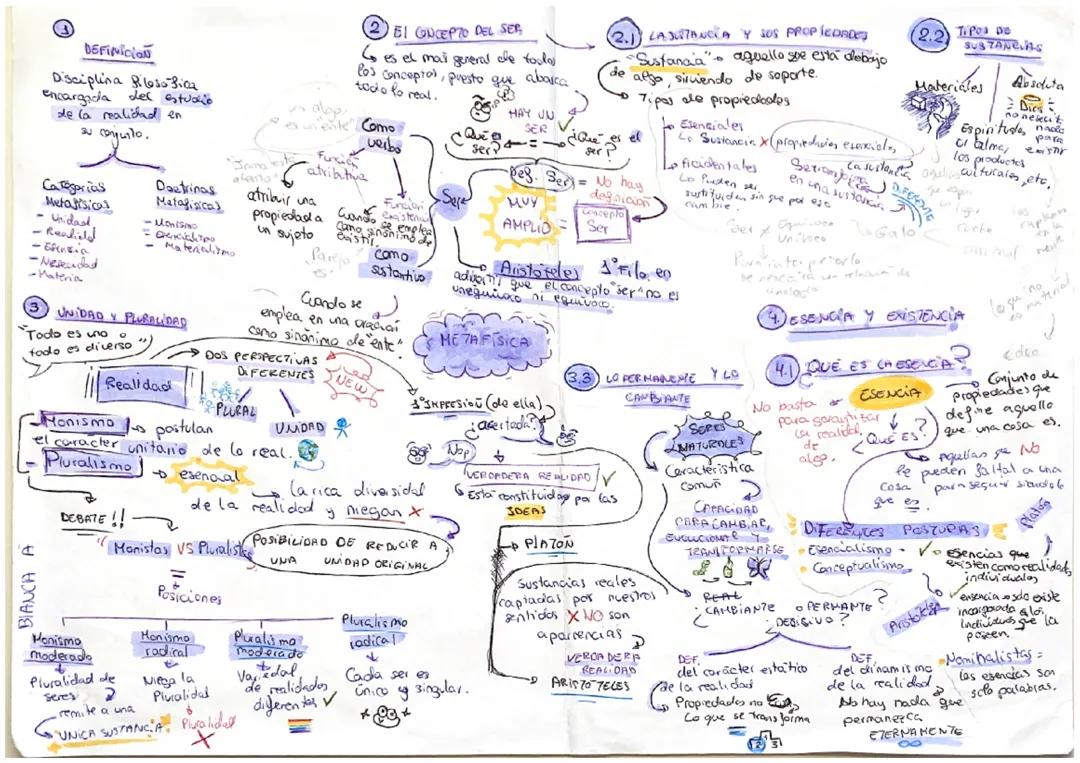 1
DEFINICIÓN
Disciplina filosófica
encargada del estudio
de la realidad en
su conjunto.
Categorías
Metafísicas
- Unidad
- Realidad
- Esencia
- Necesidad
- Materia
Doctrinas
Metafísicas
- Monismo
- Esencialismo
- Materialismo
2 El CONCEPTO DEL SER
es el mas general de todos
los conceptos, puesto que abarca
todo lo real.
HAY UN
SER
¿Qué es
ser?
=
¿Qué es el
ser?
Def. Ser = No hay
definición
MUY
AMPLIO
=
Concepto
Ser
Ser
Como
verbo
Función
atributiva
atribuir una
propiedad a
un sujeto
Función
existencial
Cuando se emplea
como sinónimo de
existir.
Como
sustantivo
Cuando se
emplea en una oración
como sinónimo de "ente".
Aristóteles 1º Filo. en
advertir que el concepto "ser" no es
unequívoco ni equívoco.
2.1 LA SUSTANCIA Y SUS PROPIEDADES
"Sustancia" → aquello que está debajo
de algo, sirviendo de soporte.
Tipos de propiedades
Esenciales
Sustancia X propiedades esenciales
Accidentales
Pueden ser
sustituidas sin que por eso
cambie.
DIFERENTE
2.2 TIPOS DE
SUSTANCIAS
Materiales
Espirituales
el alma,
los productos
culturales, etc.
Absoluta
Dios
no necesita
nada
para
existir
METAFÍSICA
3 UNIDAD Y PLURALIDAD
"Todo es uno o
todo es diverso"
Realidad
DOS PERSPECTIVAS
DIFERENTES
NEW
PLURAL
UNIDAD
Monismo → postulan
el carácter unitario de lo real.
Pluralismo → esencial
la rica diversidad
de la realidad y niegan X
POSIBILIDAD DE REDUCIR A
UNA UNIDAD ORIGINAL
DEBATE!!
Monistas VS Pluralistas
=
Posiciones
Monismo
moderado
Pluralidad de
seres
remite a una
UNICA SUSTANCIA.
Monismo
radical
Niega la
Pluralidad
Pluralidad
X
Pluralismo
moderado
Variedad
de realidades
diferentes ✓
Pluralismo
radical
Cada ser es
único y singular.
BIANCA A
1ª IMPRESIÓN (de ella)
¿acertada?
Nop
VERDADERA REALIDAD ✓
Está constituida por las
IDEAS
PLATÓN
Sustancias reales
captadas por nuestros
sentidos X NO son
apariencias
VERDADERA
REALIDAD
ARISTÓTELES
3.3 LO PERMANENTE Y LO
CAMBIANTE
SERES
NATURALES
Característica
común
CAPACIDAD
PARA CAMBIAR,
EVOLUCIONAR Y
TRANSFORMARSE
REAL
¿CAMBIANTE o PERMANTE?
¿DECISIVO?
DEF.
del carácter estático
de la realidad
Lo que se transforma
DEF.
del dinamismo
de la realidad
No hay nada que
permanezca
ETERNAMENTE
4. ESENCIA Y EXISTENCIA
4.1 QUE ES LA ESENCIA?
ESENCIA
No basta
para garantizar
la realidad
de
algo.
¿Qué ES?
Conjunto de
propiedades que
define aquello
que una cosa es.
Aquellas que NO
le pueden faltar a una
cosa para seguir siendo lo
que es
DIFERENTES POSTURAS
- Esencialismo
- Conceptualismo
Platón
esencias que
existen como realidades
individuales
Aristóteles
esencia → solo existe
incorporada a los
individuos que la
poseen.
Nominalistas =
las esencias son
solo palabras.